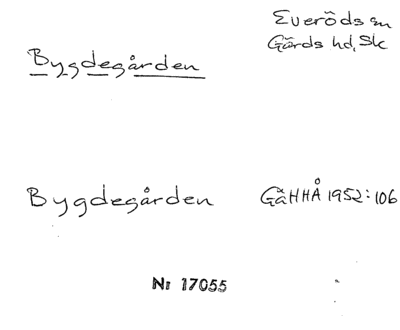 Everöds sn
Gärds hd, Sk
Bygdegården
Bygdegården GäHHÅ 1952:106
Nr 17055